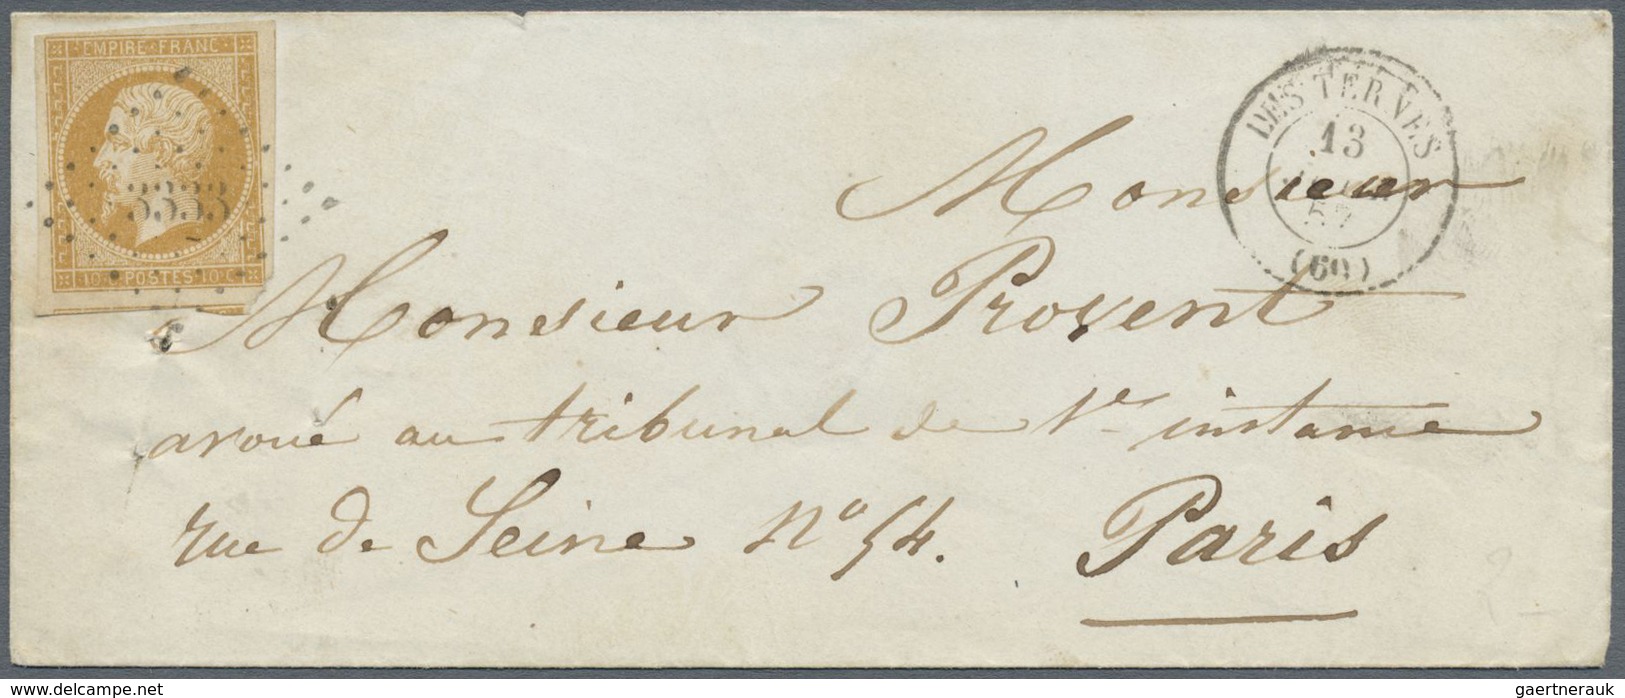 EMPIRE FRANC
3333
10 C POSTES 10 C
LES TERNES
13
57
(60)
Monsieur
Monsieur Provent
avoué au tribunal de 1re instance
rue de Seine No 54. Paris
www.delcampe.net
gaertnerauk